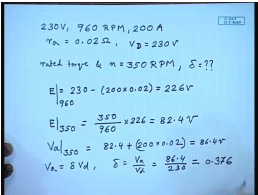 230V, 960 RPM, 200A
ra = 0.02Ω, VD = 230V
rated torque & n = 350 RPM, δ = ??
E|960 = 230 - (200×0.02) = 226V
E|350 = 350/960 × 226 = 82.4V
Va|350 = 82.4 + (200×0.02) = 86.4V
Va = δ Vd, δ = Va/Vd = 86.4/230 = 0.376